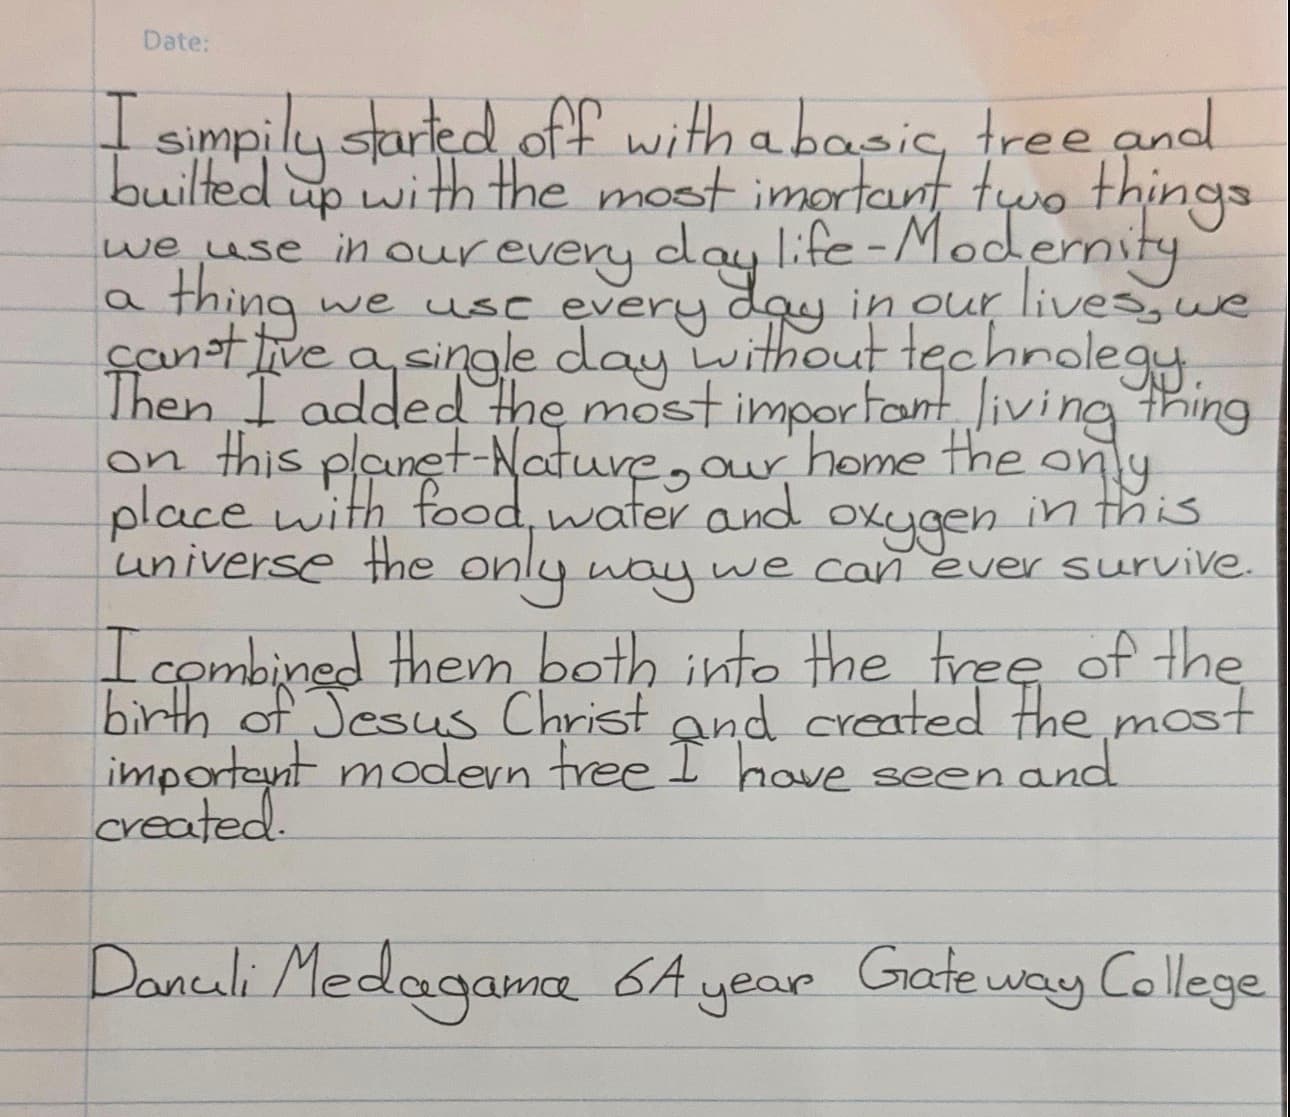 Date:
I simpily started off with a basic tree and
builted up with the most imortant two things
we use in our every day life - Modernity
a thing we use every day in our lives, we
cannot live a single day without technolegy.
Then I added the most important living thing
on this planet-Nature, our home the only
place with food, water and oxygen in this
universe the only way we can ever survive.
I combined them both into the tree of the
birth of Jesus Christ and created the most
important modern tree I have seen and
created.
Danuli Medagama 6A year Gateway College